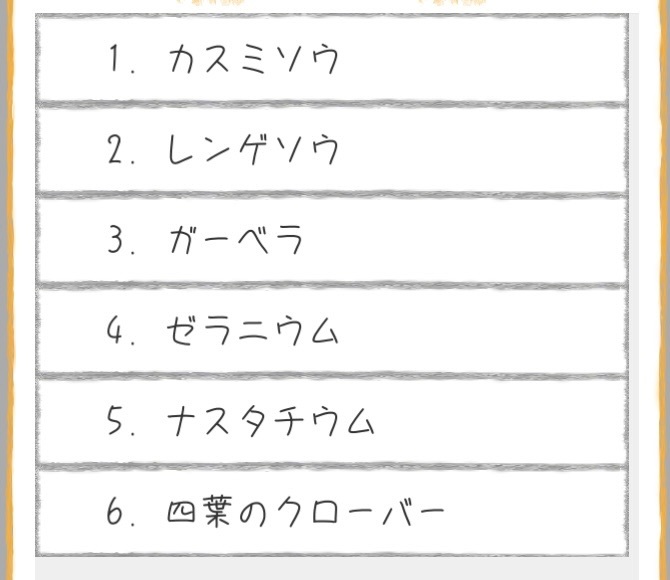 1. カスミソウ
2. レンゲソウ
3. ガーベラ
4. ゼラニウム
5. ナスタチウム
6. 四葉のクローバー